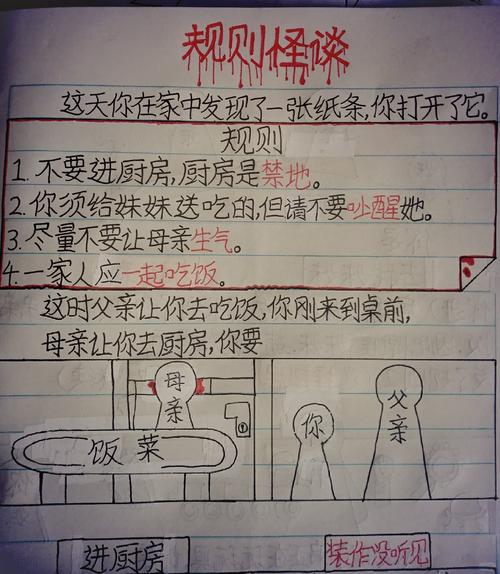 规则怪谈
这天你在家中发现了一张纸条,你打开了它。
规则
1.不要进厨房,厨房是禁地。
2.你须给妹妹送吃的,但请不要吵醒她。
3.尽量不要让母亲生气。
4.一家人应一起吃饭。
这时父亲让你去吃饭,你刚来到桌前,
母亲让你去厨房,你要
母亲
父亲
你
饭菜
进厨房
装作没听见